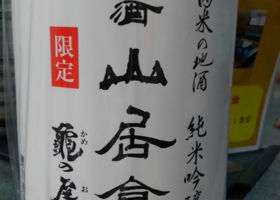 米の地酒
純米吟醸
山居倉
限定
亀の尾
かめ
お
:30